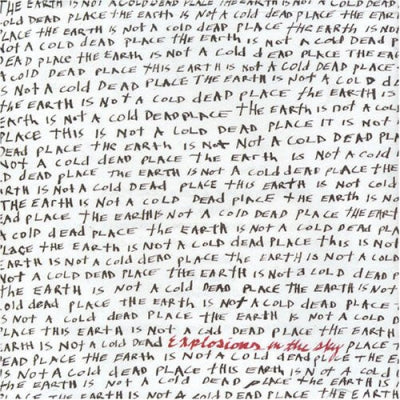 THE EARTH IS NOT A COLD DEAD PLACE THE EARTH IS NOT A COLD DEAD
Old DEAD PLACE THE EARTH IS NOT A COLD DEAD PLACE THE EAR
PLACE THE EARTH IS NOT A COLD DEAD PLACE THE EARTH IS NOT
NOT A COLD DEAD PLACE THE EARTH IS NOT A COLD DEAD PLACE
DEAD PLACE THE EARTH IS NOT A cold dead PLACE THE EA
A COLD DEAD PLACE THIS EARTH IS NOT A COLD DEAD PLACE
S NOT A Cold DEAD PLACE THE EARTH IS NOT A COLD D
the EARTH IS NOT A COLD DEAD PLACE the EARTH IS NOT
EARTH IS NOT A COLD DEAD PLACE THE EARTH IS NOT A COLD
PLACE THIS IS NOT A COLD DEAD PLACE IT IS NOT
DEAD PLACE THE EARTH IS NOT A COLD DEAD PLA
NOT A COLD DEAD PLACE THE EARTH IS NOT A COLD
D DEAD PLACE THE EARTH IS NOT A COLD DEAD PLACE THE
ARTH IS NOT A Cold DEAD PLACE THIS EARTH IS NOT COLD
THE EARTH IS NOT A COLD DEAD PLACE THE EARTH IS NOT
EAD PLACE THE EARTH IS NOT A COLD DEAD PLACE THE EART
A COLD DEAD PLACE THE EARTH IS NOT A COLD DEAD PLA
PLACE THE EARTH IS NOT A COLD DEAD PLACE THIS IS NOT
EARTH IS NOT A COLD DEAD PLACE THE EARTH IS NOT A COLD
NOT A COLD DEAD PLACE THE EARTH IS NOT A COLD DEAD P
THE EARTH IS NOT A COLD DEAD PLACE THE EARTH IS NOT
old dead PLACE THE EARTH IS NOT A COLD DEAD PLACE
S NOT A COLD DEAD PLACE THE EARTH IS NOT A COLD
PLACE THIS EARTH IS NOT A COLD DEAD PLACE THE EARTH
EARTH IS NOT A COLD DEAD Explosions in the sky PLACE T
EAD PLACE THE EARTH IS NOT A COLD DEAD PLACE THE E
IS NOT A COLD DEAD PLACE THIS EARTH IS NOT A COLD
the EARTH IS NOT A COLD DEAD PLACE THE EARTH IS NOT